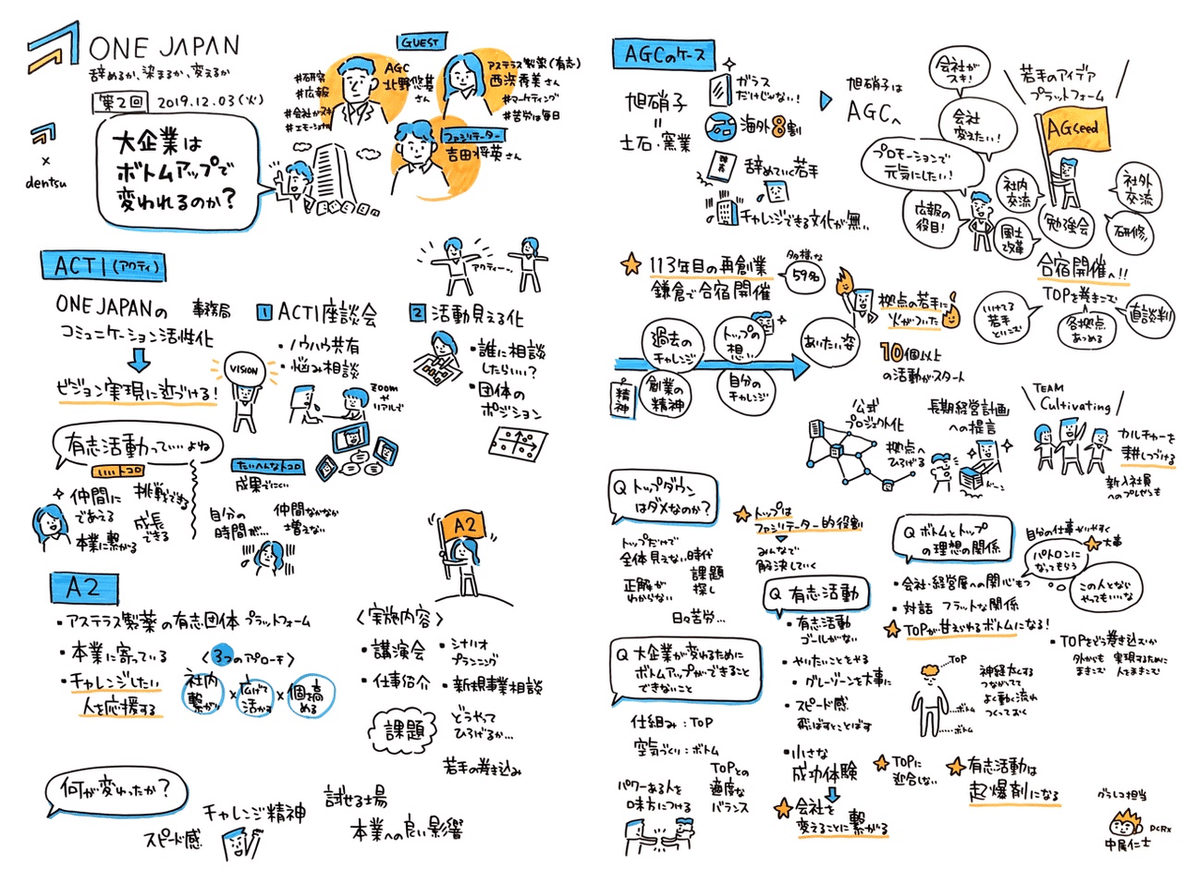 ONE JAPAN
辞めるか、染まるか、変えるか
第2回 2019.12.03(火)
×
dentsu
大企業は
ボトムアップで
変われるのか?
GUEST
#研究
#広報
#会社がスキ
#エモーショナル
AGC
北野悠基
さん
アステラス製薬(有志)
西浜秀美さん
#マーケティング
#苦労は毎日
ファシリテーター
吉田将英さん
ACT1(アクティ)
アクティーッ
ONE JAPANの 事務局
コミュニケーション活性化
ビジョン実現に近づける!
VISION
1 ACT1座談会
・ノウハウ共有
・悩み相談
zoom
や
リアルで
2 活動見える化
・誰に相談
したらいい?
・団体の
ポジション
有志活動って…よね
いいトコロ
仲間に
であえる
本業に繋がる
挑戦できる
成長
できる
たいへんなトコロ
成果でにくい
自分の
時間が…
仲間なかなか
増えない
A2
A2
・アステラス製薬の有志団体プラットフォーム
・本業に寄っている
・チャレンジしたい
人を応援する
〈3つのアプローチ〉
社内
繋がり
×
広げて
活かす
×
個を高
める
〈実施内容〉
・講演会
・仕事紹介
・シナリオ
プランニング
・新規事業相談
課題
どうやって
ひろげるか…
若手の巻き込み
何が変わったか?
スピード感
チャレンジ精神
試せる場
本業への良い影響
AGCのケース
旭硝子
=
土石・窯業
ガラス
だけじゃない!
海外8割
辞めていく若手
チャレンジできる文化が無い
旭硝子は
AGCへ
会社が
スキ!
会社
変えたい!
プロモーションで
元気にしたい!
広報の
役目!
若手のアイデア
プラットフォーム
AGseed
社内
交流
社外
交流
風土
改革
勉強会
研修
合宿開催へ!!
TOPを巻きこんで
いけてる
若手
といこで
各拠点
あつめる
直談判
113年目の再創業
鎌倉で合宿開催
多様な
59名
過去の
チャレンジ
トップの
想い
ありたい姿
精神
創業の
精神
自分の
チャレンジ
拠点の若手に
火がついた
10個以上
の活動がスタート
公式
プロジェクト化
拠点へ
ひろげる
長期経営計画
への提言
ドーン
TEAM
Cultivating
カルチャーを
耕しつづける
新入社員
へのプレゼンも
Q トップダウン
はダメなのか?
トップだけで
全体見えない時代
正解が
わからない
課題
探し
日々苦労…
トップは
ファシリテーター的役割
みんなで
解決していく
Q 大企業が変わるために
ボトムアップができること
できないこと
仕組み:TOP
空気づくり:ボトム
パワーある人を
味方につける
TOPとの
適度な
バランス
Q 有志活動
・有志活動
ゴールがない
・やりたいことをやる
・グレーゾーンを大事に
・スピード感
飛ばすとことばす
・小さな
成功体験
会社を
変えることに繋がる
Q ボトムとトップ
の理想の関係
・会社・経営層への関心もつ
・対話 フラットな関係
TOPが甘えられるボトムになる!
自分の仕事がしやすく
大事
パトロンに
なってもらう
この人となら
やってもいいな
・TOPをどう巻き込むか
外からも
まきこむ
実現するために
人をまきこむ
TOP
ボトム
ボトム
神経太くする
つながって
よく動く流れ
つくっておく
TOPに
迎合しない
有志活動は
起爆剤になる
グラレコ担当
DCRX
中尾仁士